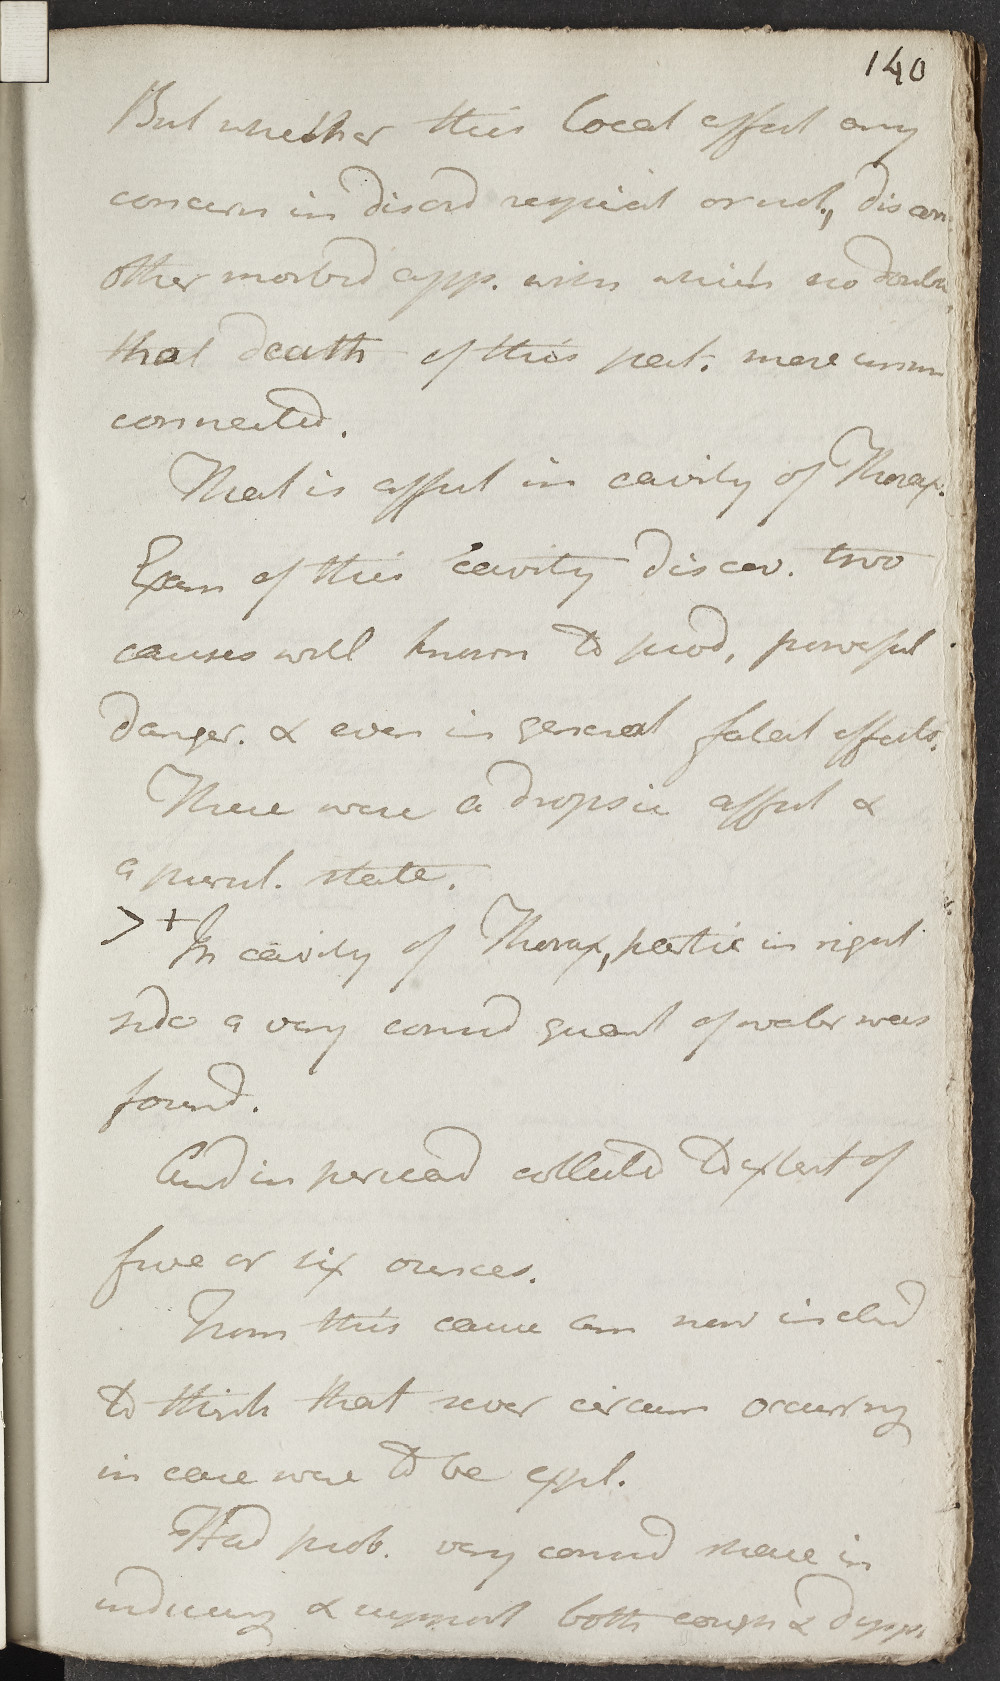 140
But whether this Local affect any
concern in disord respirat or not, discov
other morbid app. with which no doubt
that death of this pat. more
connected.
That is affect in cavity of Thorax.
Exam of this cavity discov. two
causes well known to prod, powerful
danger. & even in general fatal effects.
These were a dropsic affect &
a purul. state.
> + In cavity of Thorax, partic in right
side a very consid quant of water was
found.
And in pericard collected to extent of
five or six ounces.
From this cause am now inclind
to think that sever circum occurring
in case were to be expl.
Had prob. very consid share in
inducing & support both cough & dyspn